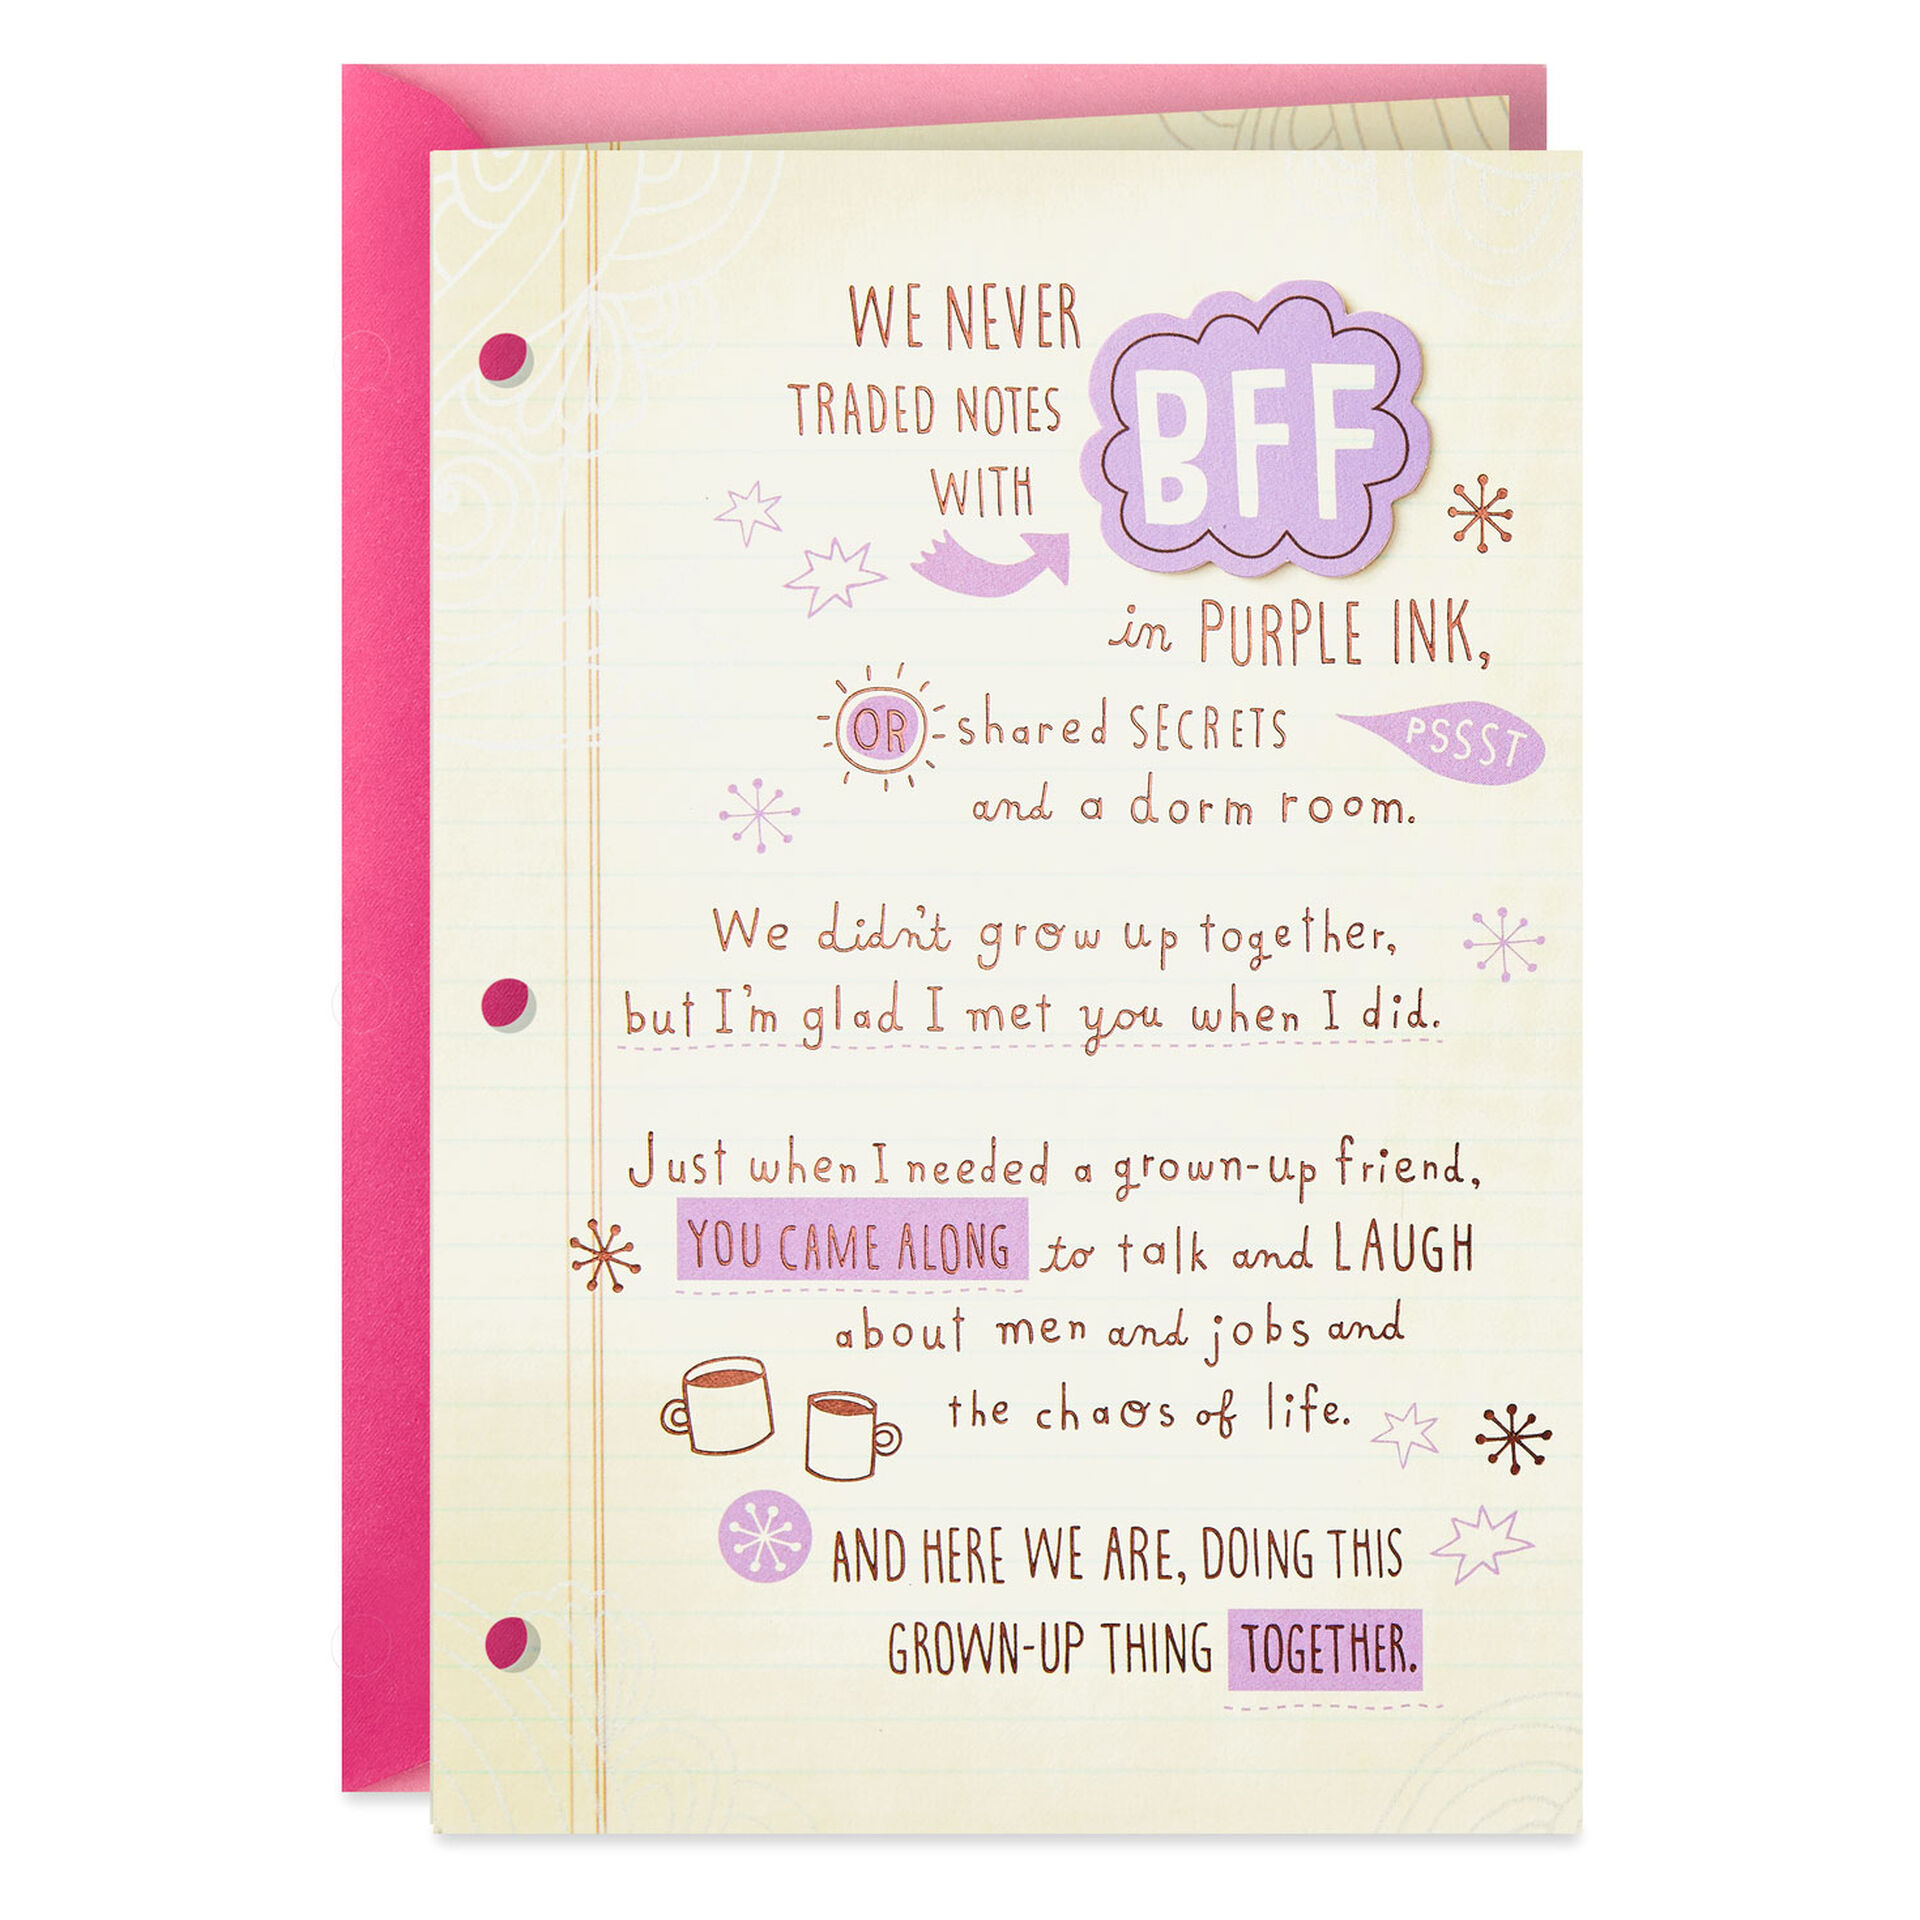 WE NEVER
TRADED NOTES
WITH
BFF
in PURPLE INK,
OR shared SECRETS
PSSST
and a dorm room.
We didn't grow up together,
but I'm glad I met you when I did.
Just when I needed a grown-up friend,
YOU CAME ALONG to talk and LAUGH
about men and jobs and
the chaos of life.
AND HERE WE ARE, DOING THIS
GROWN-UP THING TOGETHER.